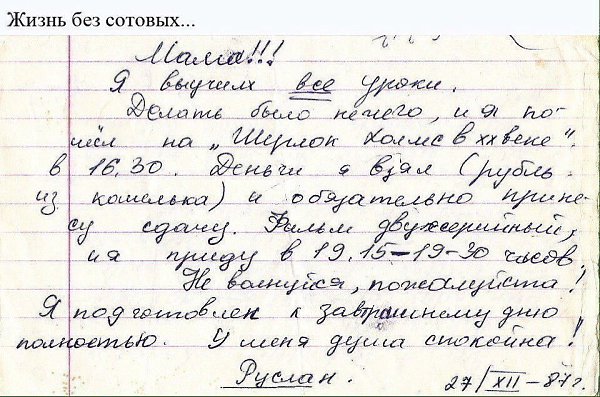 Жизнь без сотовых...
Мама!!!
Я выучил все уроки.
Делать было нечего, и я по-
шёл на „Шерлок Холмс в XX веке".
в 16.30. Деньги я взял (рубль
из кошелька) и обязательно прине-
су сдачу. Фильм двухсерийный,
и я приду в 19.15–19-30 часов
Не волнуйся, пожалуйста!
Я подготовлен к завтрашнему дню
полностью. У меня душа спокойна!
Руслан.
27/XII–87г.